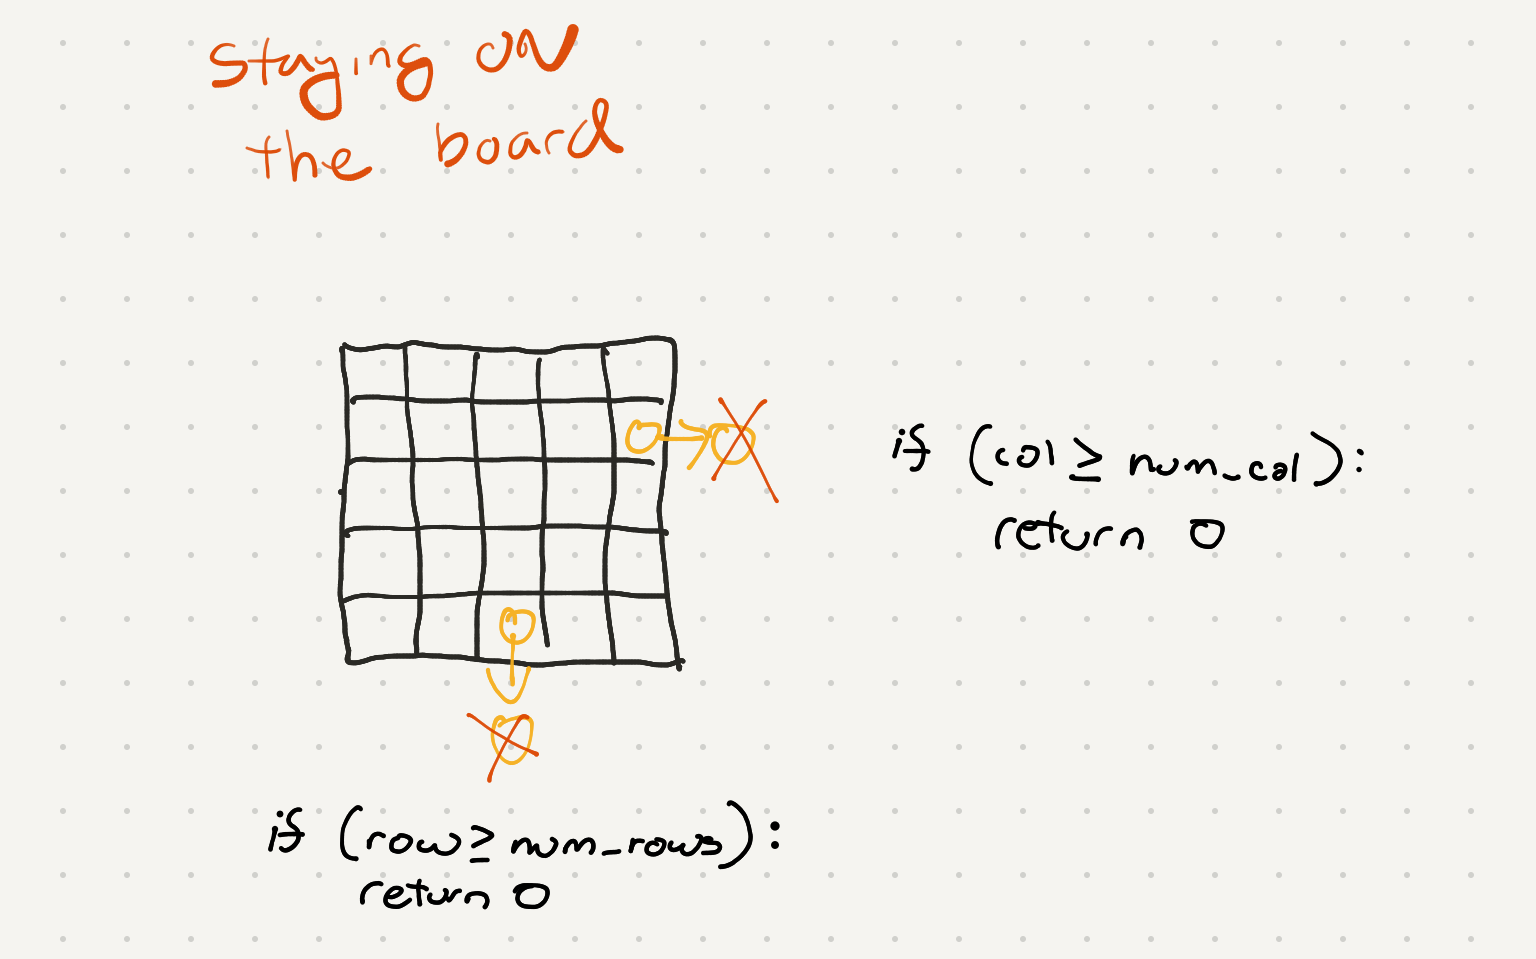 staying on
the board
if (col ≥ num_col):
return 0
if (row ≥ num_rows):
return 0